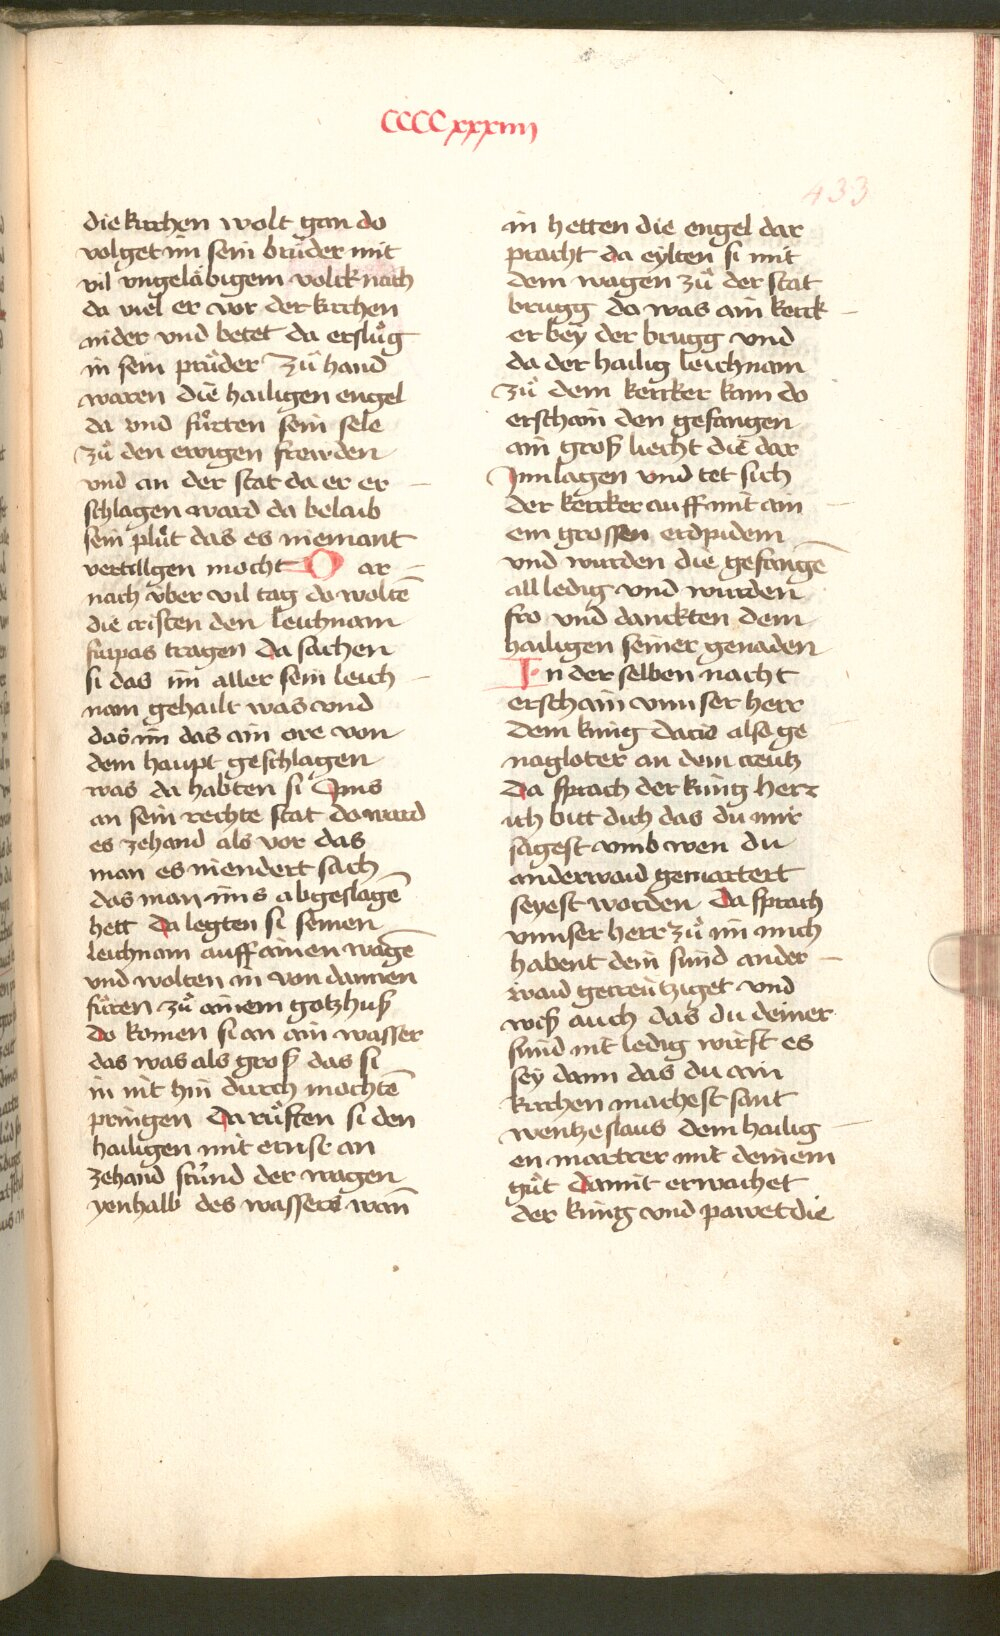 CCCCxxxiiii
433
die kirchen wolt gan do
volget im sein brůder mit
vil vngeläbigem volck nach
da viel er vor der kirchen
nider vnd betet da erslůg
in sein průder Zů hand
waren die hailigen engel
da vnd fůrten sein sele
zů den ewigen frewden
vnd an der stat da er er
schlagen ward da belaib
sein plůt das es niemant
vertillgen mocht Dar
nach über vil tag do woltē
die cristen den leichnam
fürpas tragen Da sachen
si das im aller sein leich
nam gehailt was vnd
das im das ain ore von
dem haupt geschlagen
was da habten si Ims
an sein rechte stat do ward
es zehand als vor das
man es niendert sach
das man ims abgeslagē
hett Da legten si seinen
leichnam auff ainen wagē
vnd wolten in von dannen
fůren zů ainem gotzhuß
do komen si an ain wasser
das was als groß das si
in nit hin durch mochtē
pringen Da růften si den
hailigen mit ernst an
zehand stůnd der wagen
yenhalb des wassers wañ
in hetten die engel dar
pracht da eylten si mit
dem wagen zů der stat
brugg do was ain kerck
er bey der brugg vnd
da der hailig leichnam
zů dem kercker kam do
erschain den gefangen
ain groß liecht die dar
Inn lagen vnd tet sich
der kercker auff mit ain
em grossen erdpidem
vnd wurden die gefangē
all ledig vnd wurden
fro vnd danckten dem
hailigen seiner genaden
In der selben nacht
erschain vnnser herr
dem küng dacie also ge
nagloter an dem creutz
Da sprach der küng herr
ich bitt dich das du mir
sagest vmb wen du
anderwaid gemartert
seyest worden Da sprach
vnnser herr zů im mich
habent dein sünd ander
waid gecreütziget vnd
wiß auch das du deiner
sünd nit ledig wirst es
sey dann das du ain
kirchen machest sant
wentzeslaus dem hailig
en martrer mit deinem
gůt Damit erwachet
der küng vnd pawet die